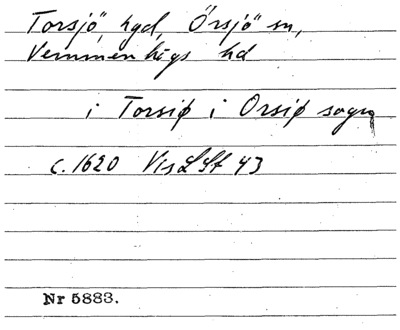 Torsjö, hgd, Örsjö sn,
Vemmenhögs hd
i Torsiø i Orsiø sogn
c. 1620 VisLSt 43
Nr 5883.